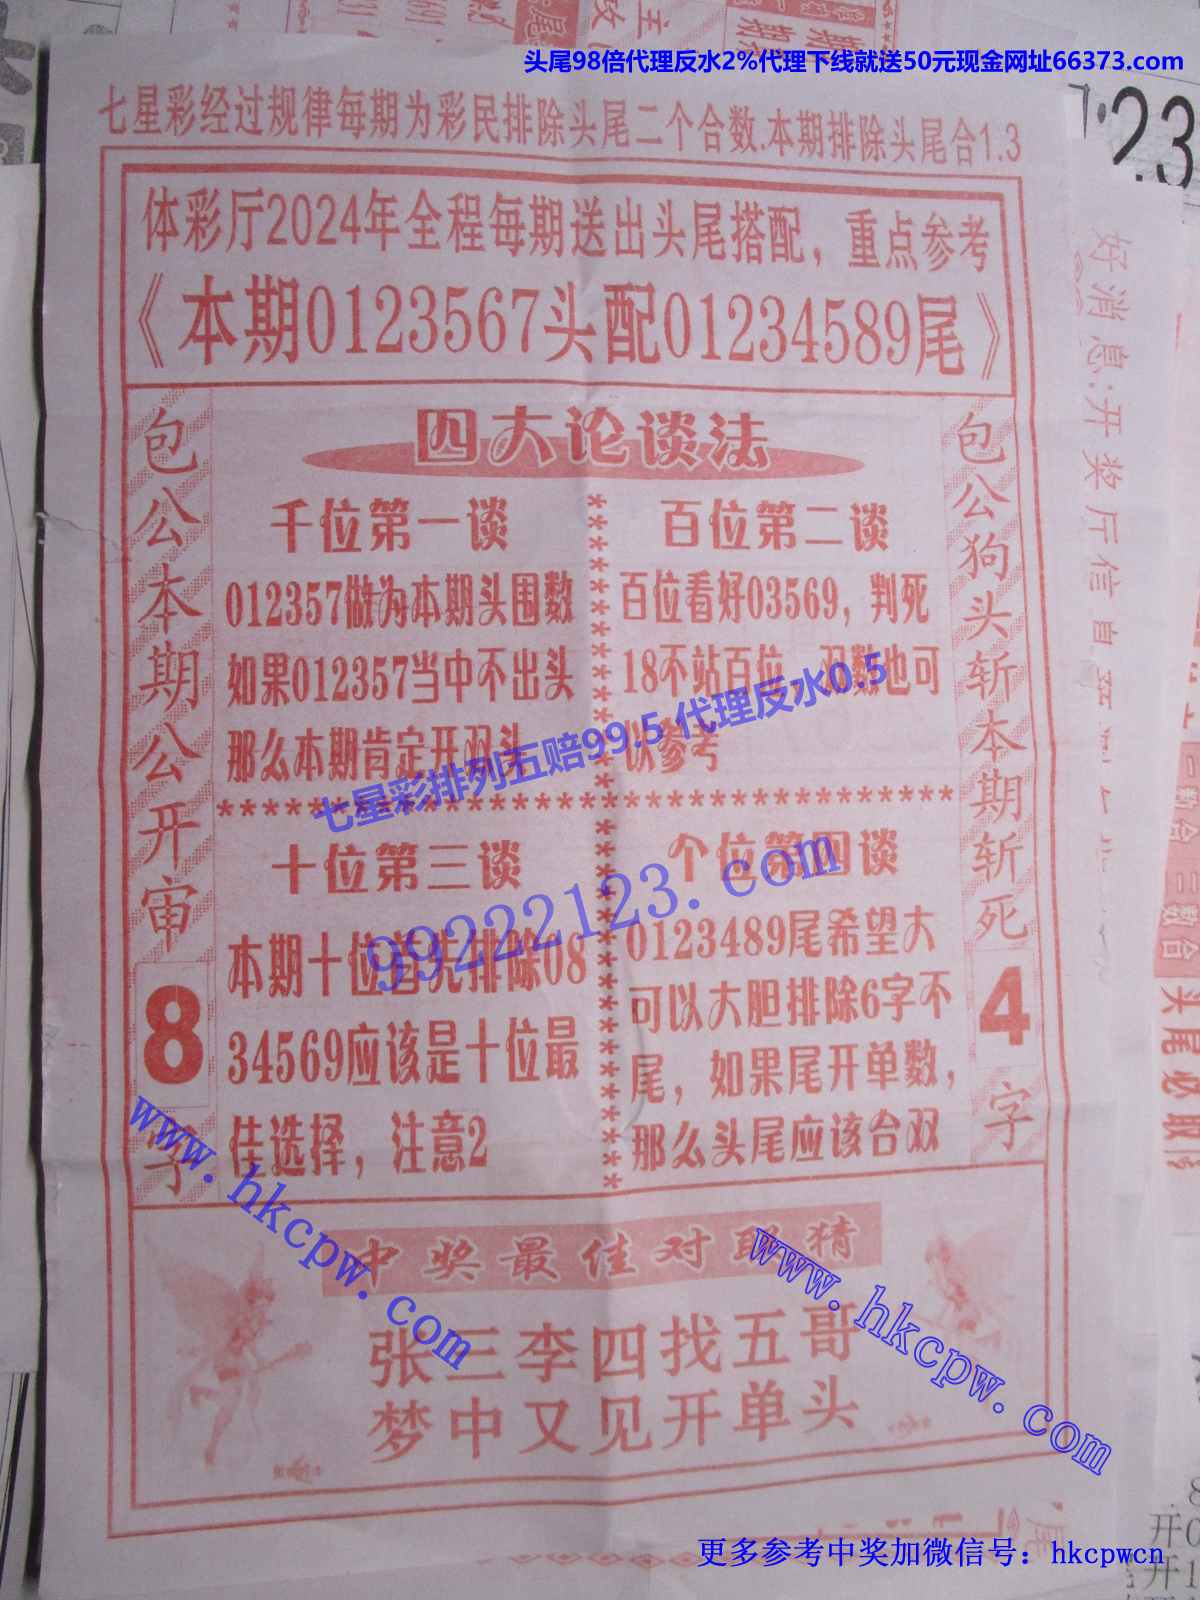 头尾98倍代理反水2%代理下线就送50元现金网址66373.com
七星彩经过规律每期为彩民排除头尾二个合数.本期排除头尾合1.3
体彩厅2024年全程每期送出头尾搭配，重点参考
《本期0123567头配01234589尾》
包公本期公开审8字
四大论谈法
千位第一谈
012357做为本期头围数
如果012357当中不出头
那么本期肯定开双头
百位第二谈
百位看好03569，判死
18不站百位，双数也可
以参考
七星彩排列五赔99.5 代理反水0.5
十位第三谈
本期十位首先排除08
34569应该是十位最
佳选择，注意2
个位第四谈
0123489尾希望大
可以大胆排除6字不
尾，如果尾开单数，
那么头尾应该合双
99222123.com
包公狗头斩本期斩死4字
www.hkcpw.com
中奖最佳对联猜
张三李四找五哥
梦中又见开单头
www.hkcpw.com
好消息:开奖厅信息
头尾必取
更多参考中奖加微信号：hkcpwcn